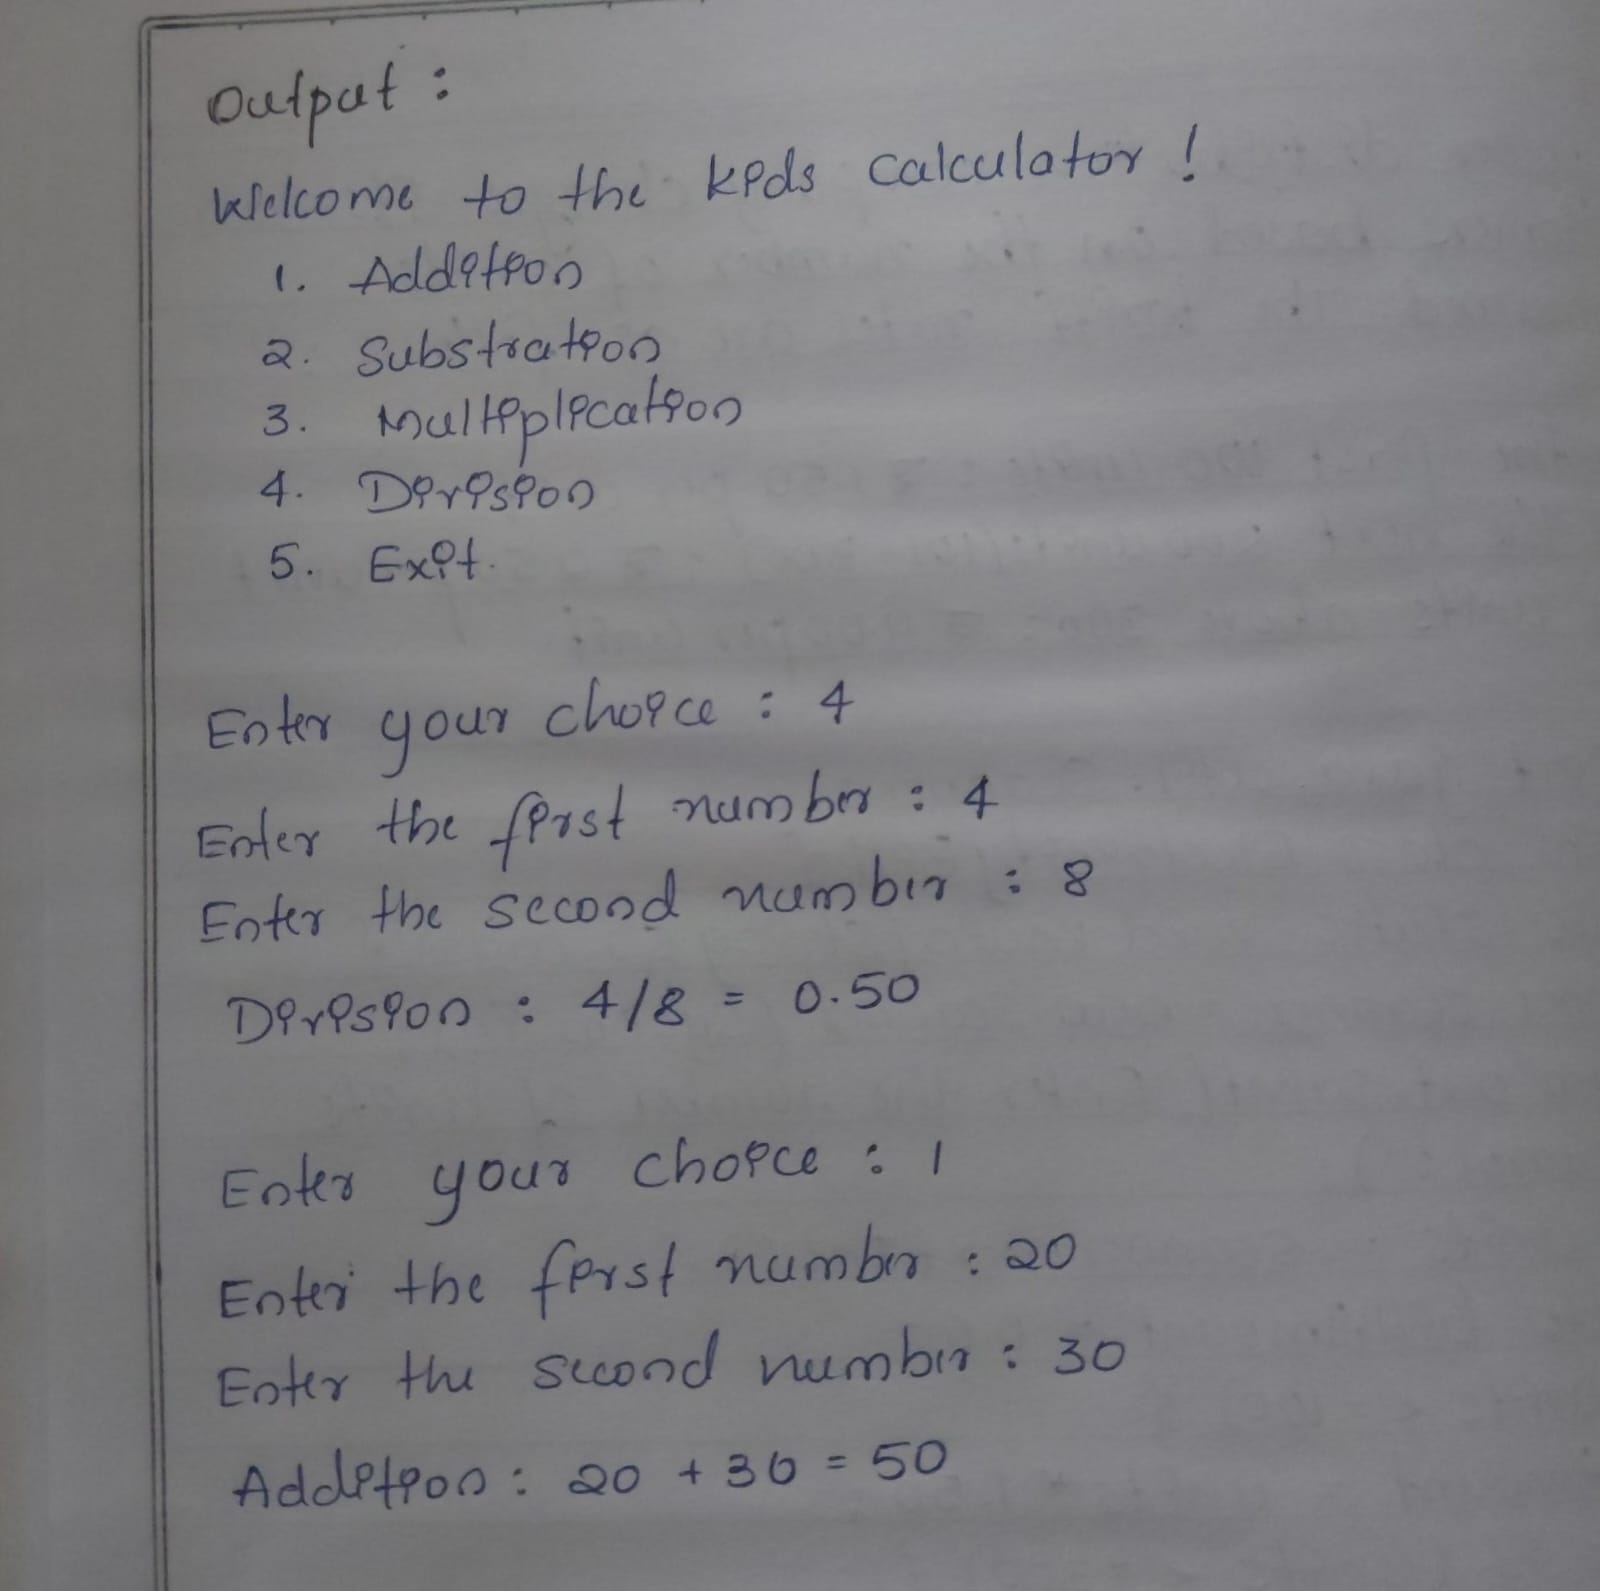 Output :
Welcome to the kids calculator !
1. Addition
2. Substration
3. Multiplication
4. Division
5. Exit.
Enter your choice : 4
Enter the first number : 4
Enter the second number : 8
Division : 4/8 = 0.50
Enter your choice : 1
Enter the first number : 20
Enter the second number : 30
Addition : 20 + 30 = 50